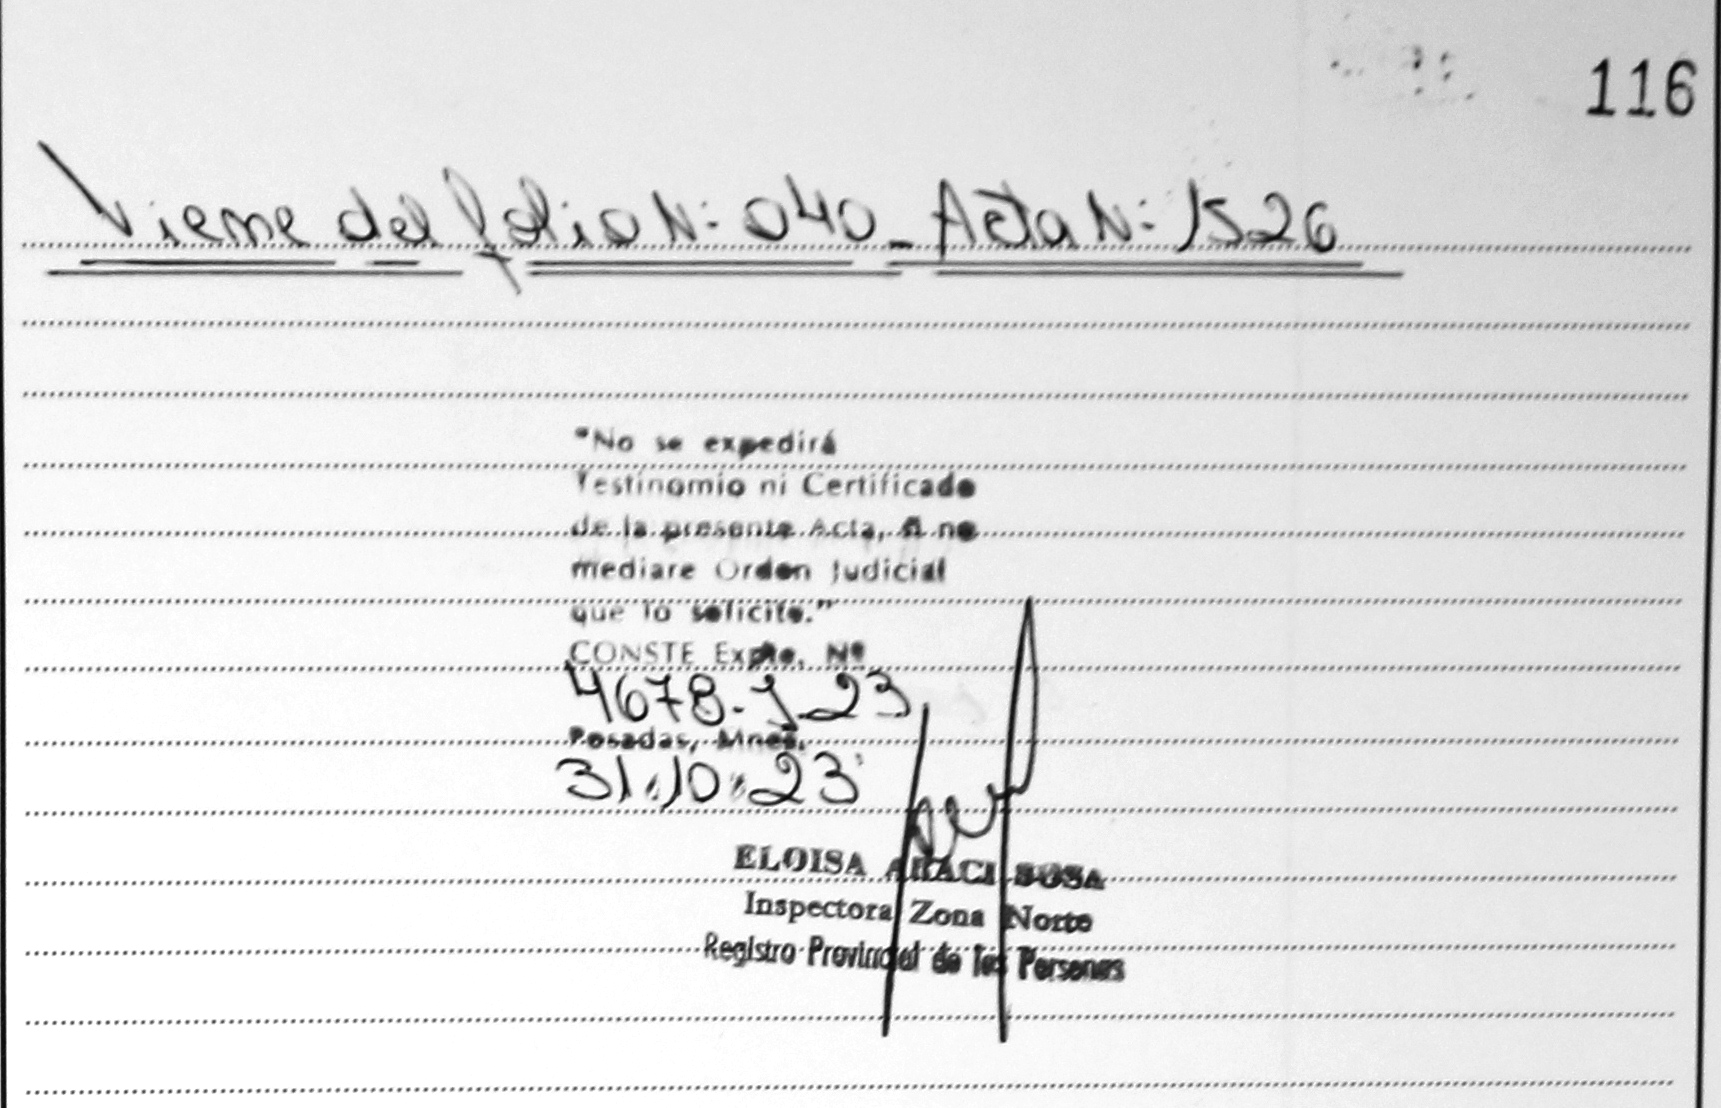 116
Viene del folio N: 040 - Acta N: 1526
"No se expedirá
Testinomio ni Certificado
de la presente Acta, si no
mediare Orden Judicial
que lo solicite."
CONSTE Expte. Nº
4678-J-23
Posadas, Mnes.
31.10.23
ELOISA ARACI SOSA
Inspectora Zona Norte
Registro Provincial de las Personas